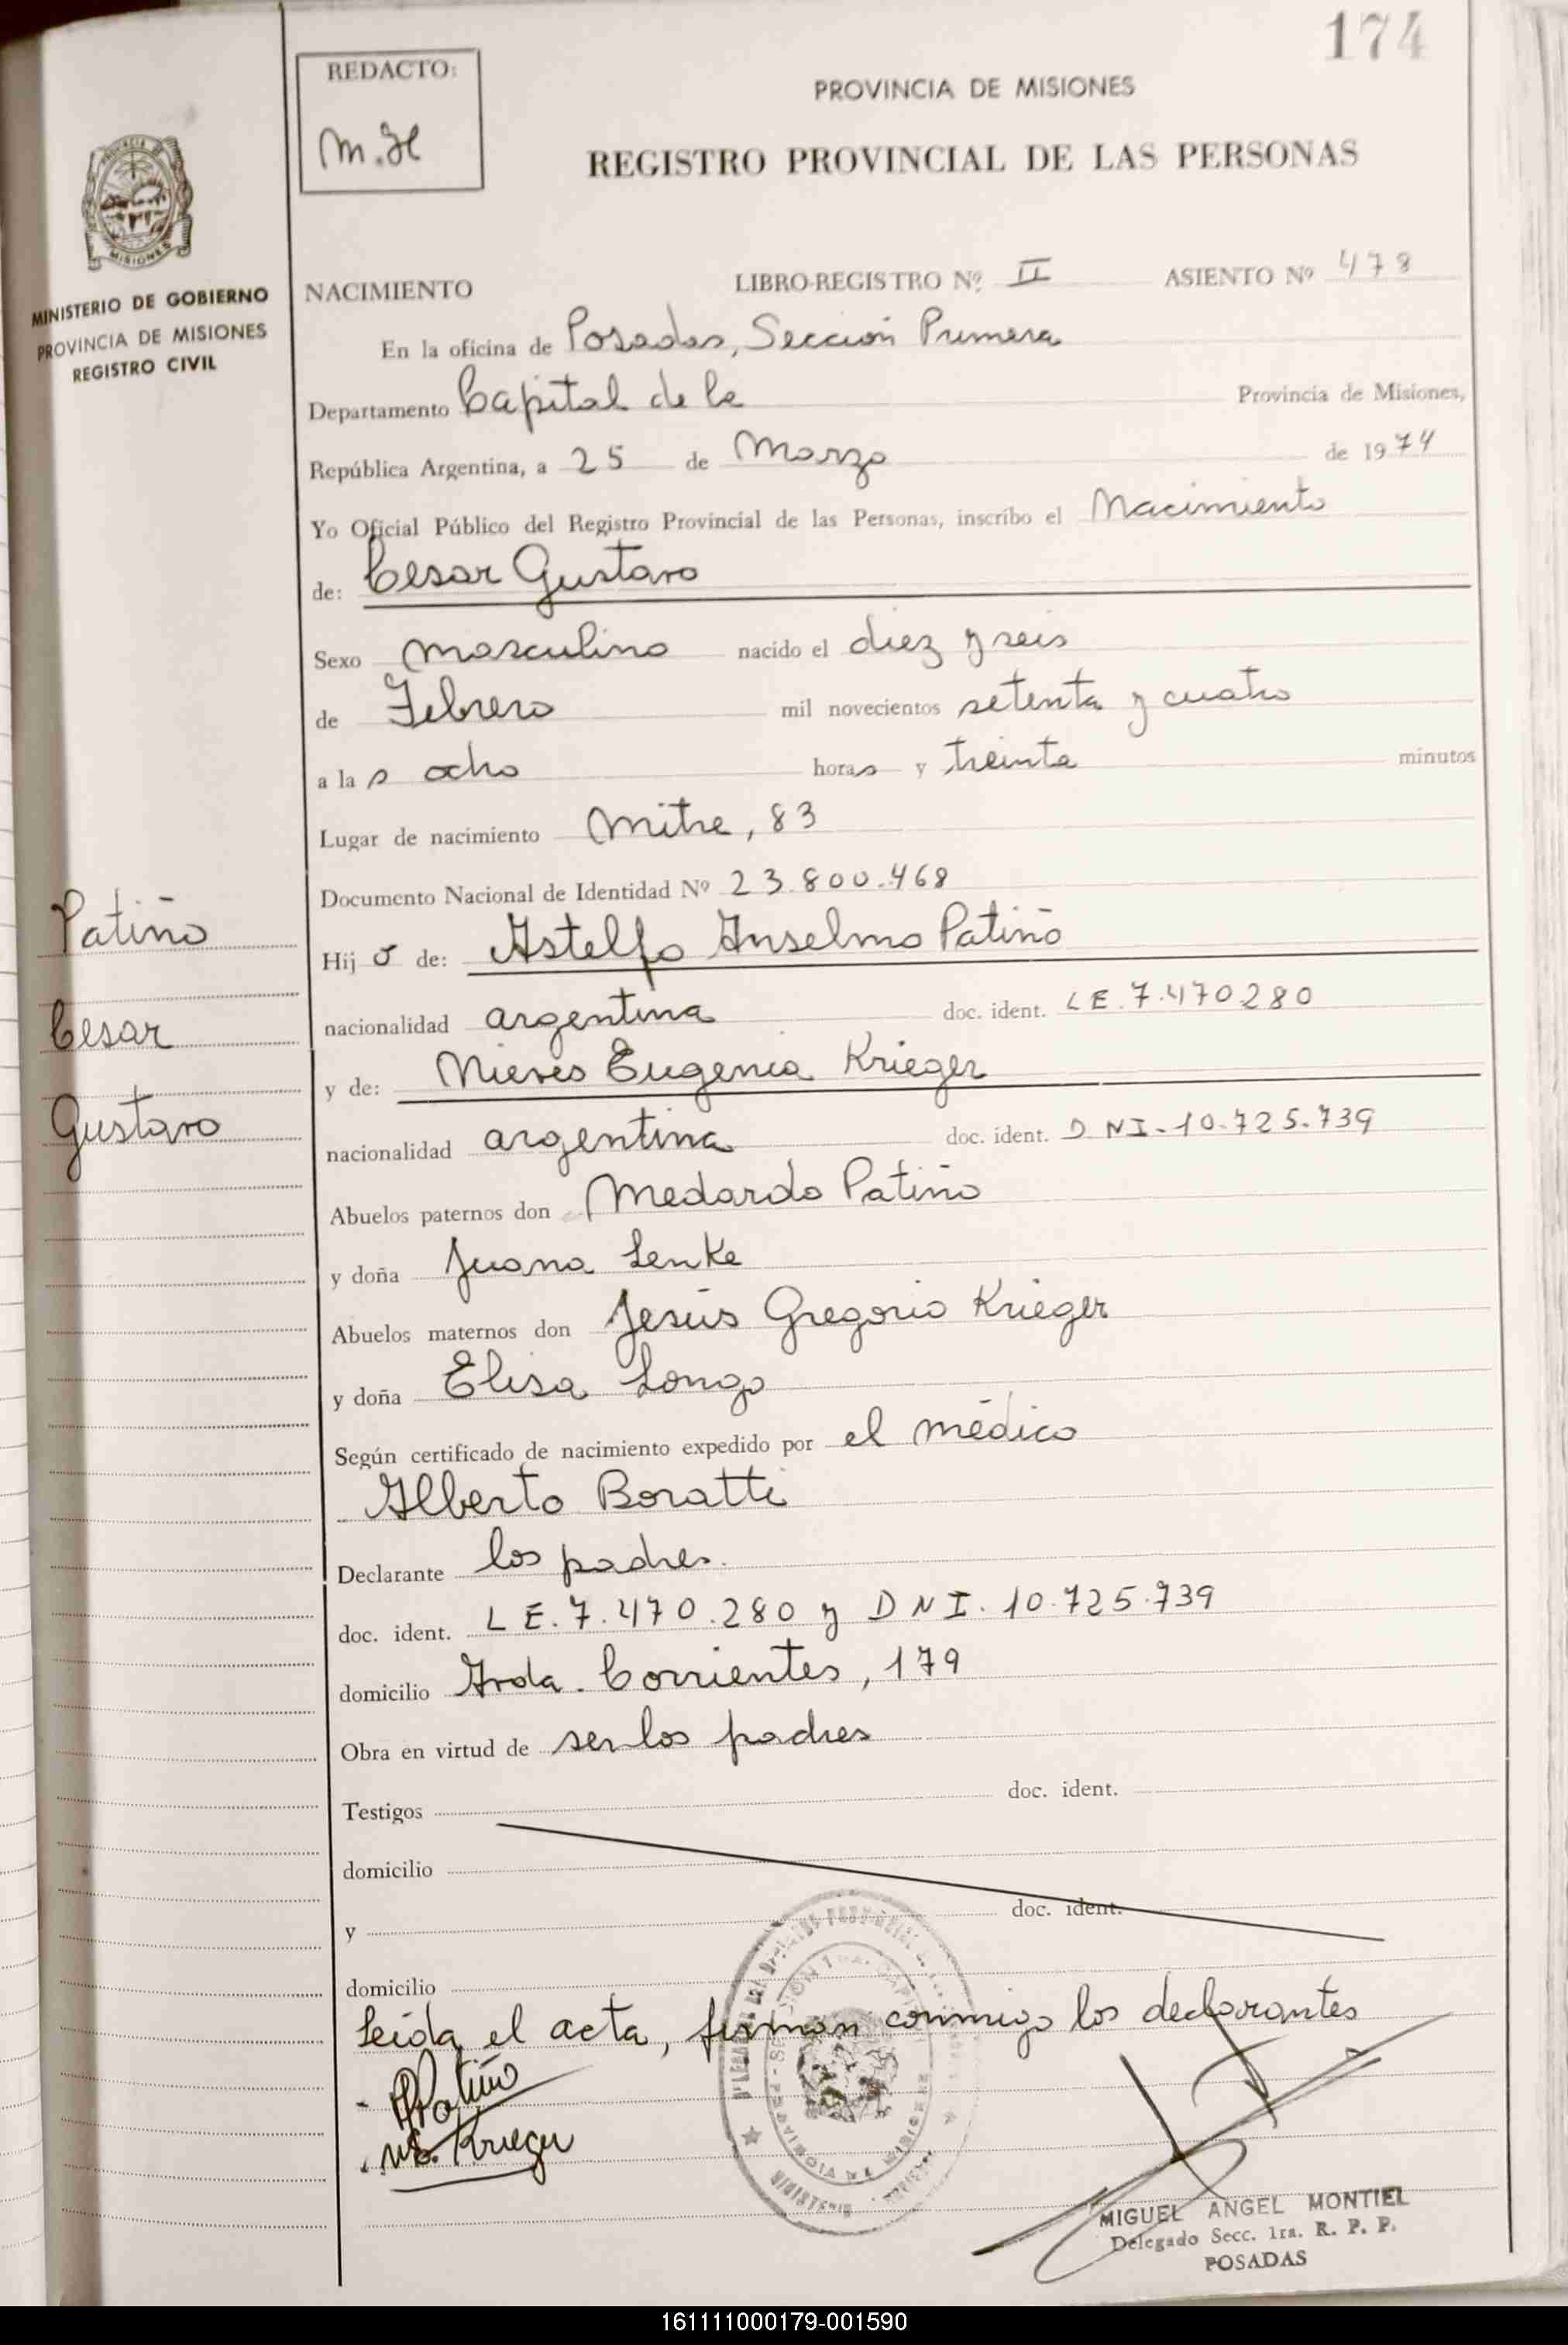 174
REDACTO:
M.H
PROVINCIA DE MISIONES
REGISTRO PROVINCIAL DE LAS PERSONAS
MISIONES
MINISTERIO DE GOBIERNO
PROVINCIA DE MISIONES
REGISTRO CIVIL
NACIMIENTO LIBRO-REGISTRO Nº II ASIENTO Nº 478
En la oficina de Posadas, Sección Primera
Departamento Capital de la Provincia de Misiones,
República Argentina, a 25 de Marzo de 1974
Yo Oficial Público del Registro Provincial de las Personas, inscribo el Nacimiento
de: Cesar Gustavo
Sexo masculino nacido el diez y seis
de Febrero mil novecientos setenta y cuatro
a la s ocho horas y treinta minutos
Lugar de nacimiento Mitre, 83
Documento Nacional de Identidad Nº 23.800.468
Patiño
Hij o de: Astelfo Anselmo Patiño
Cesar
nacionalidad argentina doc. ident. LE.7.470280
y de: Nieves Eugenia Krieger
Gustavo
nacionalidad argentina doc. ident. DNI-10.725.739
Abuelos paternos don Medardo Patiño
y doña Juana Lenke
Abuelos maternos don Jesús Gregorio Krieger
y doña Elisa Longo
Según certificado de nacimiento expedido por el médico
Alberto Boratti
Declarante los padres.
doc. ident. LE.7.470.280 y DNI.10.725.739
domicilio Avda. Corrientes, 179
Obra en virtud de ser los padres
Testigos doc. ident.
domicilio
y doc. ident.
domicilio
Leida el acta, firman conmigo los declarantes
Patiño
N.E. Krieger
MIGUEL ANGEL MONTIEL
Delegado Secc. 1ra. R. P. P.
POSADAS
161111000179-001590